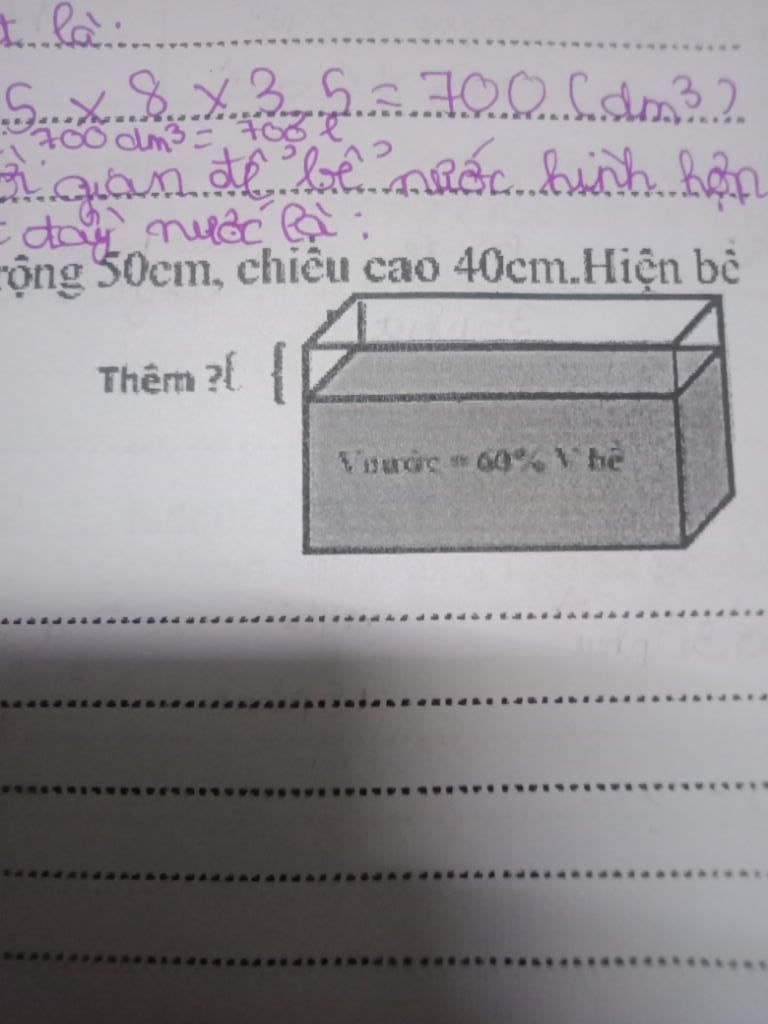 t là:
5 x 8 x 3,5 = 700 (dm³)
700 dm³ = 700 l
gian để bể nước hình hộp
đầy nước là:
rộng 50cm, chiều cao 40cm.Hiện bể
Thêm ?{
V nước = 60% V bể